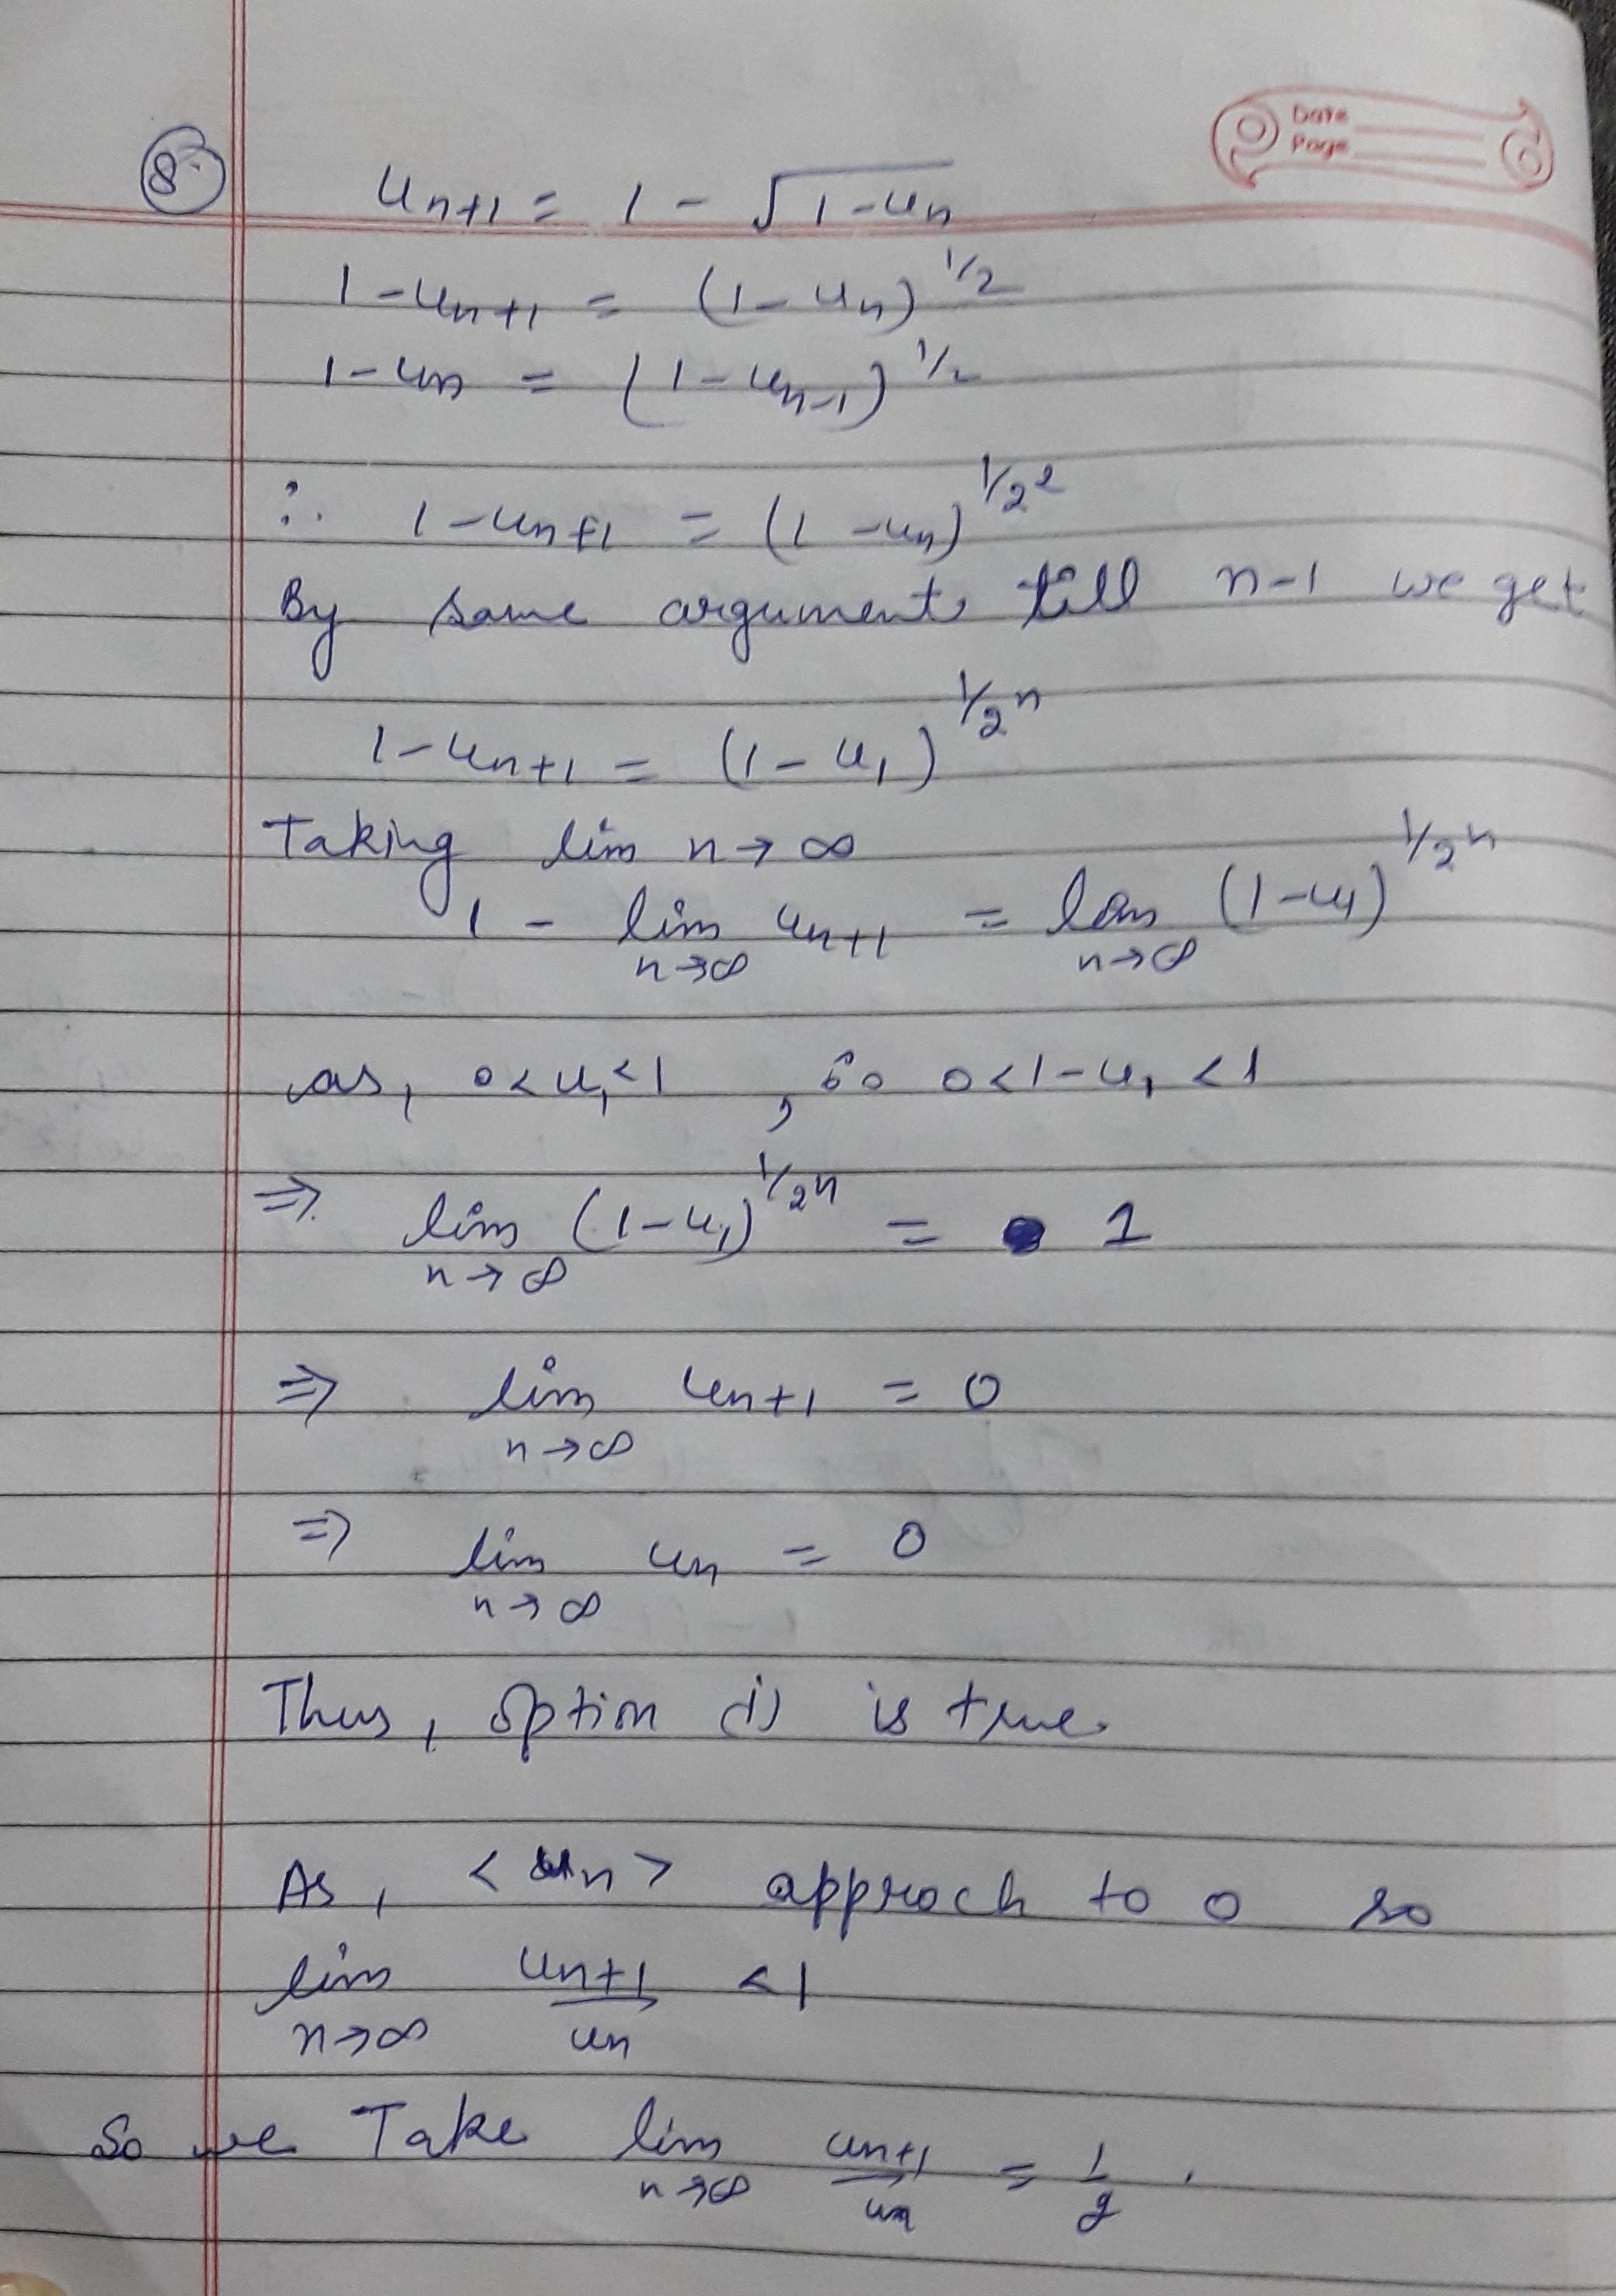 Date
Page
8
u_{n+1} = 1 - √(1-u_n)
1-u_{n+1} = (1-u_n)^{1/2}
1-u_n = (1-u_{n-1})^{1/2}
∴ 1-u_{n+1} = (1-u_n)^{1/2^2}
By same arguments till n-1 we get
1-u_{n+1} = (1-u_1)^{1/2^n}
Taking lim n→∞
1 - lim_{n→∞} u_{n+1} = lim_{n→∞} (1-u_1)^{1/2^n}
as, 0<u_1<1 , so 0<1-u_1<1
⇒ lim_{n→∞} (1-u_1)^{1/2^n} = 1
⇒ lim_{n→∞} u_{n+1} = 0
⇒ lim_{n→∞} u_n = 0
Thus, option i) is true.
As, <u_n> approch to 0 so
lim_{n→∞} u_{n+1}/u_n < 1
So we Take lim_{n→∞} u_{n+1}/u_n = 1/2 .